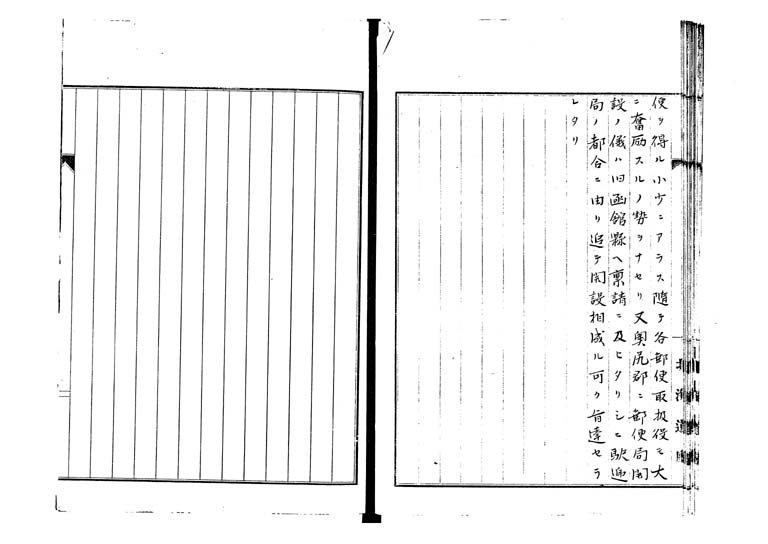 便ヲ得ル小少ニアラス随テ各郵便取扱役モ大
ニ奮励スルノ勢ヲナセリ又奥尻郡ニ郵便局開
設ノ儀ハ旧函館縣ヘ稟請ニ及ヒタリシニ駅逓
局ノ都合ニ由リ追テ開設相成ル可ク旨達セラ
レタリ